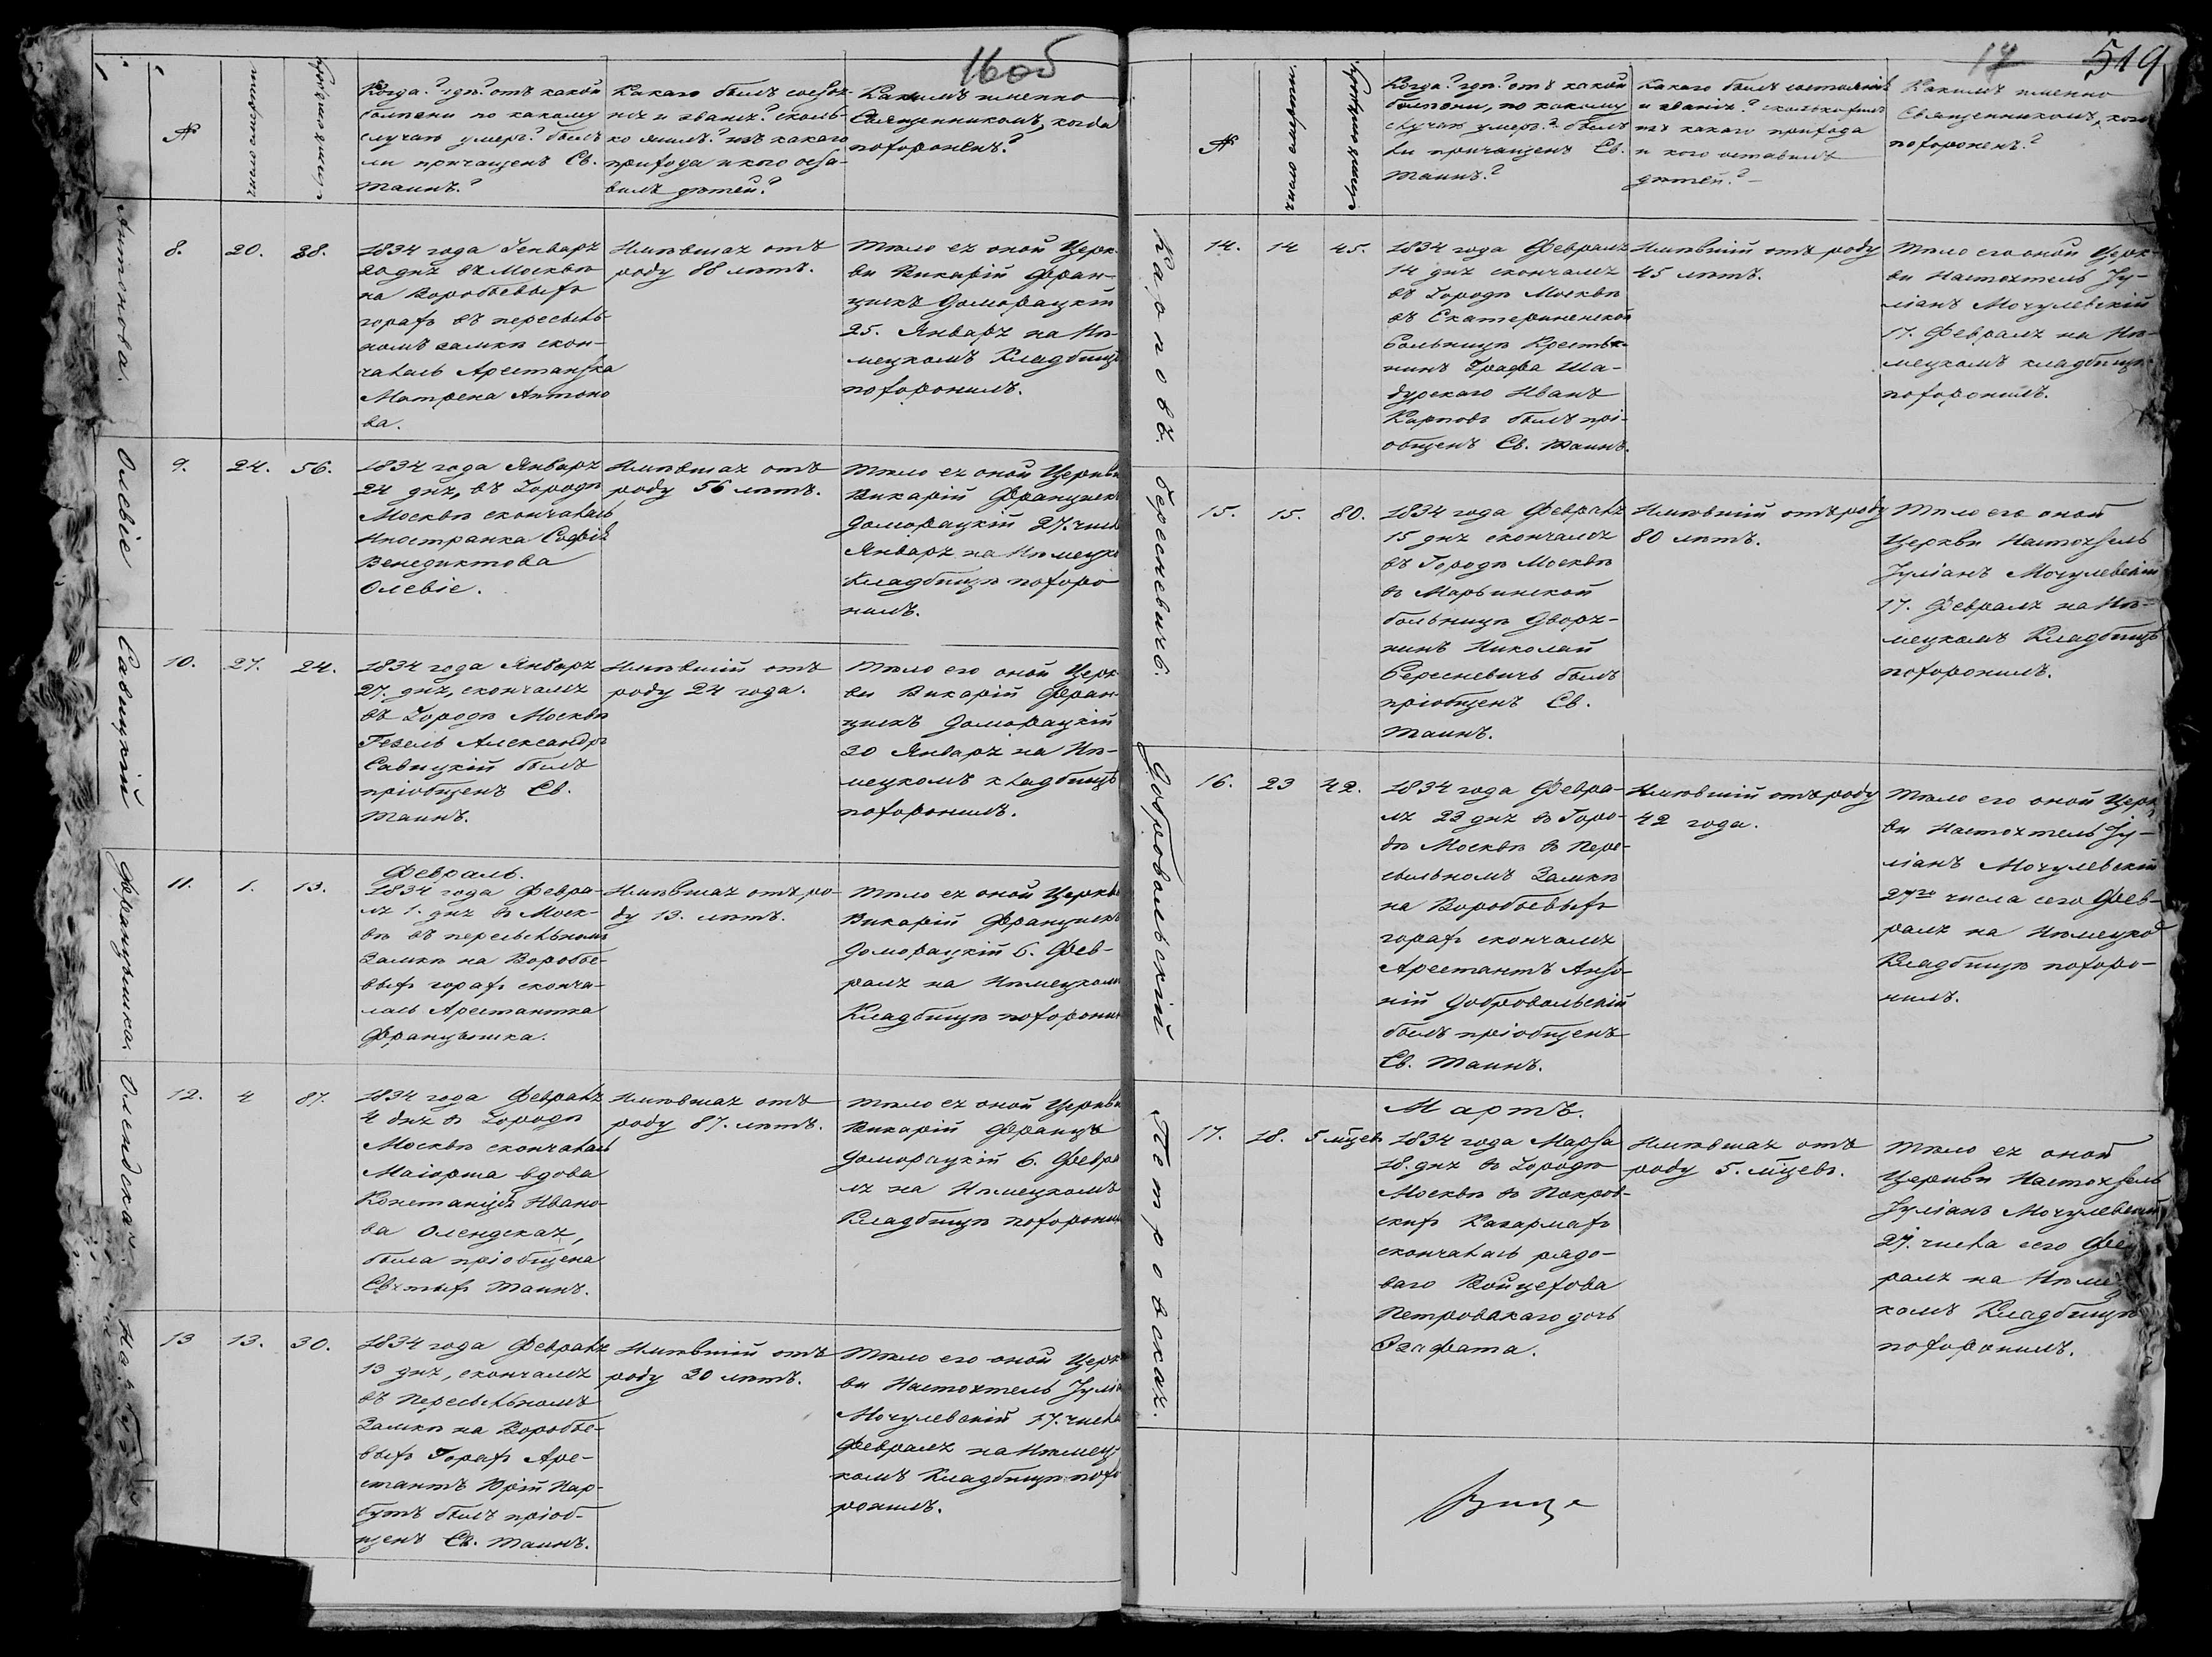 16 об
№
число смерти
сколько жилъ
Когда? гдѣ? отъ какой
болѣзни по какому
случаю умеръ? былъ
ли причащенъ Св.
Таинъ?
Какого былъ состоя-
нія и званія? сколь-
ко жилъ? изъ какого
прихода и кого оста-
вилъ дѣтей?
Какимъ именно
Священникомъ, когда
похороненъ?
Антонова.
8.
20.
88.
1834 года Генваря
20 дня въ Москвѣ
на Воробьевыхъ
горахъ въ пересыль-
номъ замкѣ скон-
чалась Арестантка
Матрена Антоно
ва.
Имѣвшая отъ
роду 88 лѣтъ.
Тѣло ея оной Церк-
ви Викарій Фран-
цискъ Доморацкій
25. Января на Нѣ-
мецкомъ Кладбищѣ
похоронилъ.
Олевіе
9.
24.
56.
1834 года Января
24 дня, въ Городѣ
Москвѣ скончалась
Иностранка Софія
Венедиктова
Олевіе.
Имѣвшая отъ
роду 56 лѣтъ.
Тѣло ея оной Церкви
Викарій Францискъ
Доморацкій 27. числа
Января на Нѣмецко
Кладбищѣ похоро
нилъ.
Савицкій
10.
27.
24.
1834 года Января
27. дня, скончался
въ Городѣ Москвѣ
Александръ
Савицкій былъ
пріобщенъ Св.
Таинъ.
Имѣвшій отъ
роду 24 года.
Тѣло его оной Церк
ви Викарій Фран-
цискъ Доморацкій
30 Января на Нѣ-
мецкомъ кладбищѣ
похоронилъ.
Францышка.
11.
1.
13.
Февраль.
1834 года Февра-
ля 1. дня въ Моск-
вѣ въ пересыльномъ
Замкѣ на Воробье-
выхъ горахъ сконча-
лась Арестантка
Францышка.
Имѣвшая отъ ро-
ду 13. лѣтъ.
Тѣло ея оной Церкви
Викарій Францискъ
Доморацкій 6. Фев-
раля на Нѣмецкомъ
Кладбищѣ похоронилъ
Олендская.
12.
4
87.
1834 года Февраля
4 дня въ Городѣ
Москвѣ скончалась
Маіорша вдова
Констанція Ивано-
ва Олендская,
была пріобщена
Святыхъ Таинъ.
Имѣвшая отъ
роду 87. лѣтъ.
Тѣло ея оной Церкви
Викарій Францъ
Доморацкій 6. Февра
ля на Нѣмецкомъ
Кладбищѣ похоронилъ
13
13.
30.
1834 года Февраля
13 дня, скончался
въ Пересыльномъ
Замкѣ на Воробье-
выхъ Горахъ Аре-
стантъ Юрій Нар-
бутъ былъ пріоб-
щенъ Св. Таинъ.
Имѣвшій отъ
роду 30 лѣтъ.
Тѣло его оной Церк
ви Настоятель Іуліа
Мочулевскій 17. числа
Февраля на Нѣмец-
комъ Кладбищѣ похо
ронилъ.
17
519
№
число смерти.
сколько жилъ
Когда? гдѣ? отъ какой
болѣзни, по какому
случаю умеръ? былъ
ли причащенъ Св.
Таинъ?
Какого былъ состоянія
и званія? сколько жилъ
изъ какого прихода
и кого оставилъ
дѣтей?
Какимъ именно
Священникомъ, когда
похороненъ?
Карповъ.
14.
14
45.
1834 года Февраля
14 дня скончался
въ Городѣ Москвѣ
въ Екатерининской
Больницѣ Крестья-
нинъ Графа Ша-
дурскаго Иванъ
Карповъ былъ прі-
общенъ Св. Таинъ.
Имѣвшій отъ роду
45 лѣтъ.
Тѣло его оной Церк-
ви Настоятель Іу-
ліанъ Мочулевскій
17. Февраля на Нѣ-
мецкомъ кладбищѣ
похоронилъ.
Бересневичъ.
15.
15.
80.
1834 года Февраля
15 дня скончался
въ Городѣ Москвѣ
въ Марьинской
больницѣ Дворя-
нинъ Николай
Бересневичъ былъ
пріобщенъ Св.
Таинъ.
Имѣвшій отъ роду
80 лѣтъ.
Тѣло его оной
Церкви Настоятель
Іуліанъ Мочулевскій
17. Февраля на Нѣ-
мецкомъ Кладбищѣ
похоронилъ.
Добровольскій
16.
23
42.
1834 года Февра-
ля 23 дня въ Горо-
дѣ Москвѣ въ Пере-
сыльномъ Замкѣ
на Воробьевыхъ
горахъ скончался
Арестантъ Анто-
ній Добровольскій
былъ пріобщенъ
Св. Таинъ.
Имѣвшій отъ роду
42 года.
Тѣло его оной Церк
ви Настоятель Іу-
ліанъ Мочулевскій
27го числа сего Фев-
раля на Нѣмецко
Кладбищѣ похоро-
нилъ.
Петровская.
17.
18.
5 мцевъ
Мартъ.
1834 года Марта
18. дня въ Городѣ
Москвѣ въ Покров-
скихъ Казармахъ
скончалась рядо-
ваго Войцехова
Петровскаго дочь
Имѣвшая отъ
роду 5. мцевъ.
Тѣло ея оной
Церкви Настоятель
Іуліанъ Мочулевскій
27. числа сего Фев
раля на Нѣмец
комъ Кладбищѣ
похоронилъ.